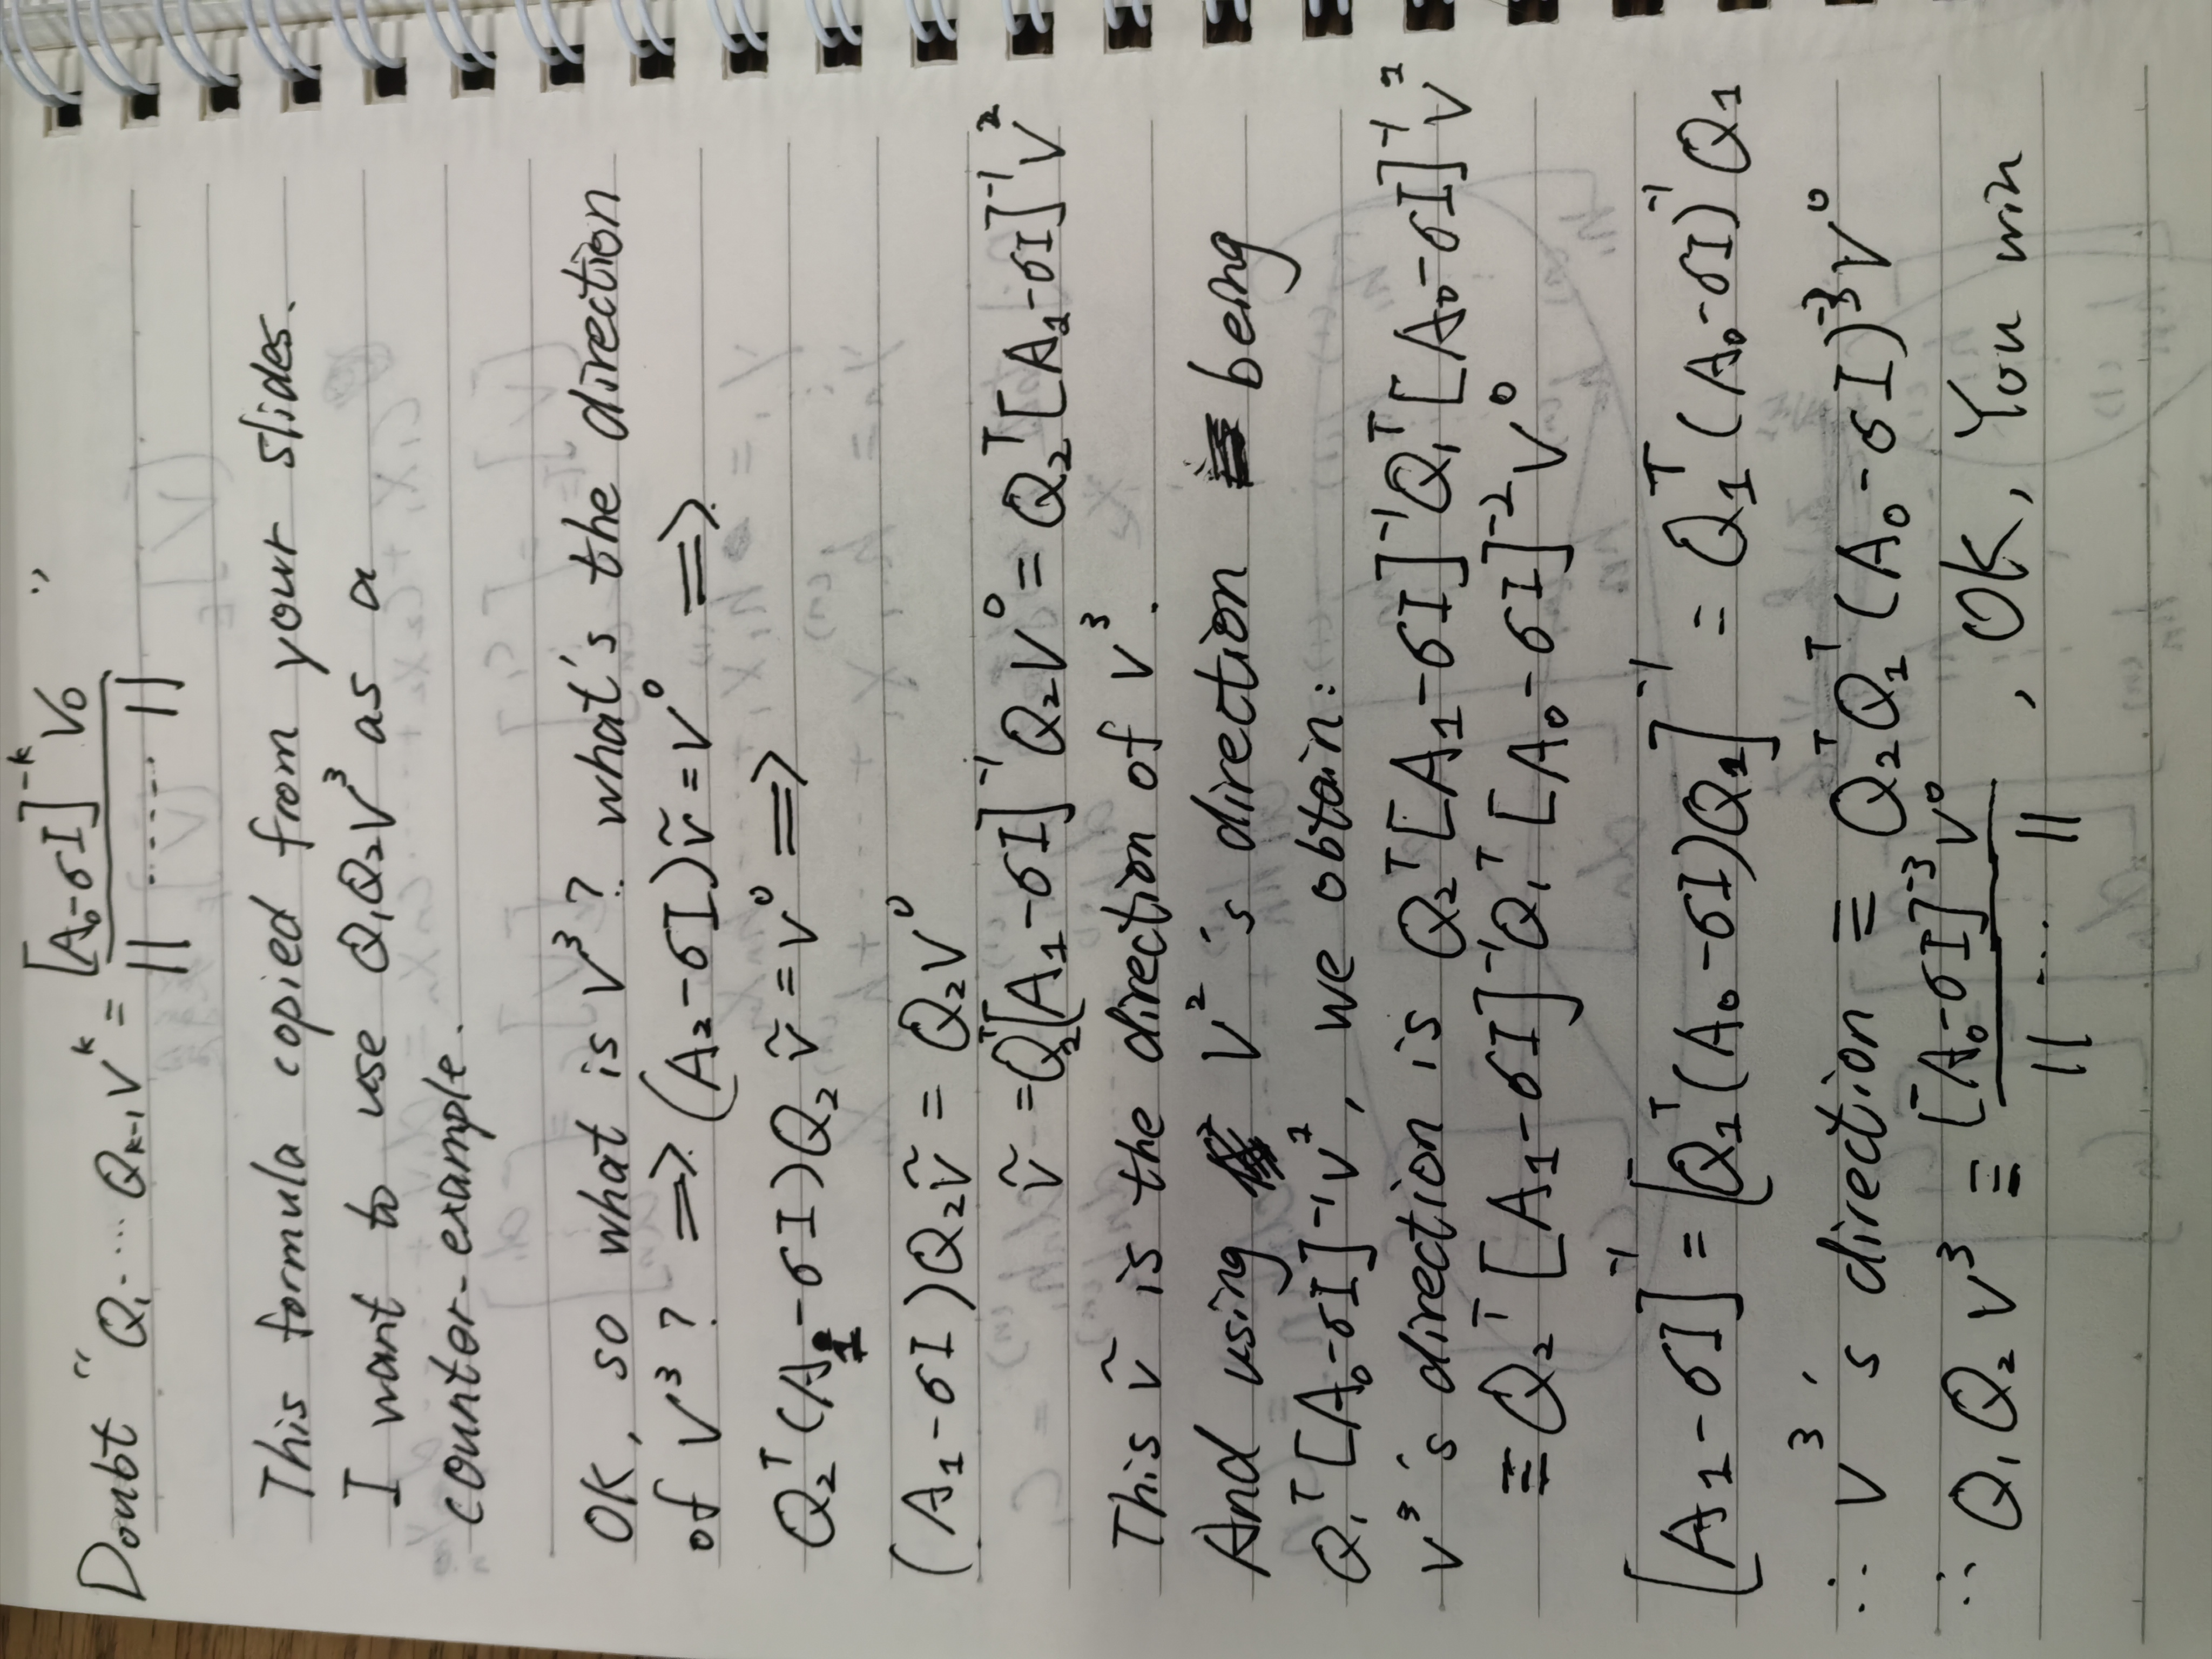 Doubt “ Q₁ .... Qₖ₋₁vᵏ = [A₀-σI]⁻ᵏ v₀ / || ...... || ”
This formula copied from your slides.
I want to use Q₁Q₂v³ as a
counter-example.
OK, so what is v³? what's the direction
of v³? ⟹ (A₂-σI)ṽ=v⁰ ⟹
Q₂ᵀ(A₁-σI)Q₂ ṽ=v⁰ ⟹
(A₁-σI)Q₂ṽ = Q₂v⁰
ṽ =Q₂ᵀ[A₁-σI]⁻¹Q₂v⁰=Q₂ᵀ[A₁-σI]⁻¹v²
This ṽ is the direction of v³.
And using v²'s direction being
Q₁ᵀ[A₀-σI]⁻¹v¹, we obtain:
v³'s direction is Q₂ᵀ[A₁-σI]⁻¹Q₁ᵀ[A₀-σI]⁻¹v¹
=Q₂ᵀ[A₁-σI]⁻¹Q₁ᵀ[A₀-σI]⁻²v⁰
[A₁-σI]⁻¹=[Q₁ᵀ(A₀-σI)Q₁]⁻¹=Q₁ᵀ(A₀-σI)⁻¹Q₁
∴ v³'s direction = Q₂ᵀQ₁ᵀ(A₀-σI)⁻³v⁰
∴ Q₁Q₂v³ = [A₀-σI]⁻³v⁰ / || ... || , OK, You win